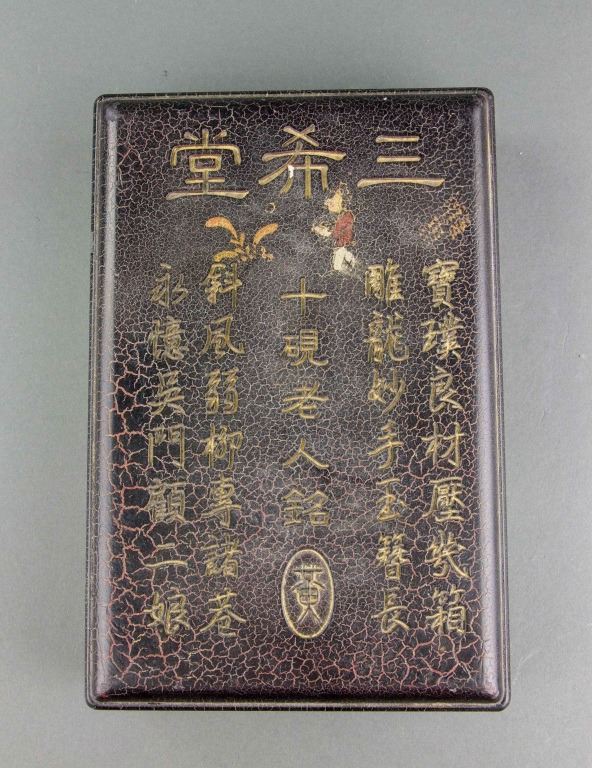 三希堂
寶璞良材壓幾箱
雕龍妙手玉簪長
十硯老人銘
黄
斜風弱柳專諸巷
永憶吳門顧二娘